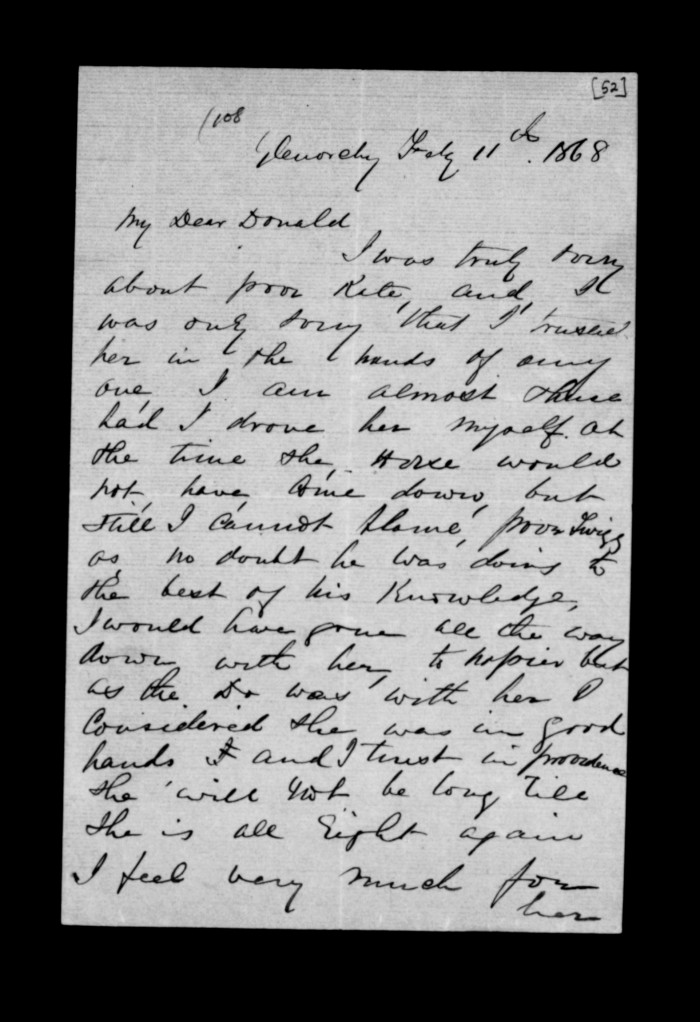 [52]
(108
Glenorchy Feby 11th. 1868
My Dear Donald
I was truly sorry
about poor Kate, and, I
was only sorry that I trusted
her in the hands of any
one, I am almost shure
had I drove her myself. at
the time the, Horse would
not, have, Come down, but
still I Cannot blame, poor Twigg
as, no doubt he was doing to
the best of his Knowledge,
I would have gone all the way
down, with her, to Napier but
as the Dr was with her I
Considered she was in good
hands and I trust in providence
she will Not be long Till
she is all Right again
I feel very much for
her